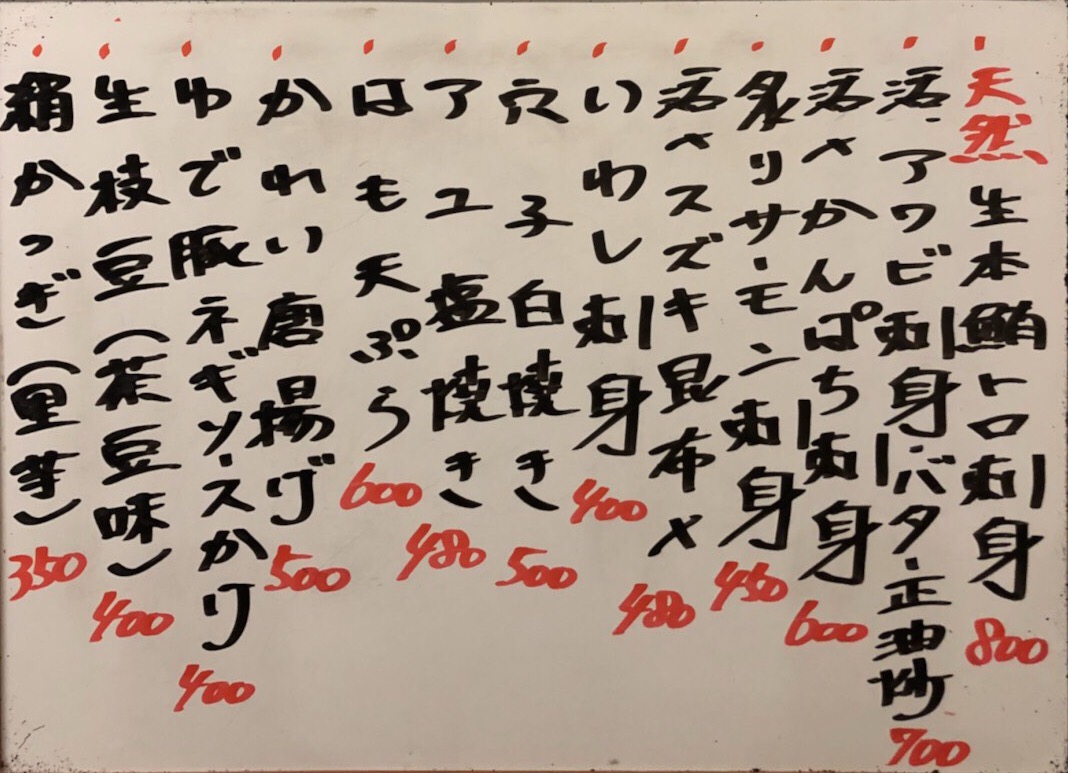 天然 生本鮪トロ刺身 800
活、アワビ刺身・バター正油炒 700
活〆かんぱち刺身 600
炙りサーモン刺身 450
活〆スズキ昆布〆 480
いわし刺身 400
穴子白焼き 500
アユ塩焼き 480
はも天ぷら 600
かれい唐揚げ 500
ゆで豚ネギソースかけ 400
生枝豆(茶豆味) 400
絹かつぎ(里芋) 350